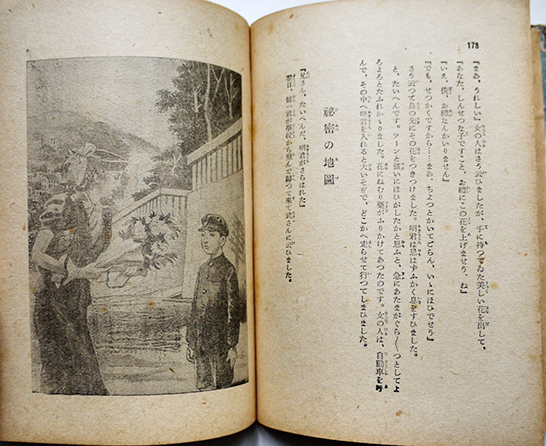 178
『まあ、うれしい』女の人はさう云ひましたが、手に持つてゐた美しい花を出して、
『あなた、しんせつな子ですこと、お禮にこの花を上げませう、ね』
『いゝえ、僕、お禮なんかいりません』
『でも、せつかくですから……まあ、ちよつとかいでごらん、いゝにほひでせう』
さう云つて鼻の先にその花をつきつけました。明君は思はずふかく息をすひました。
と、たいへんです。ツーンと强いにほひがしたかと思ふと、急にあたまがぐら〱つとしてよ
ろよろとたふれかゝりました。花にねむり藥がふりかけてあつたのです。女の人は、自動車を呼
んで、その中へ明君を入れると大いそぎで、どこかへ走らせて行つてしまひました。
祕密の地圖
『兄さん、たいへんだ、明君がさらはれた』
翌日、健一君が學校から飛んで歸つて來て武さんに云ひました。